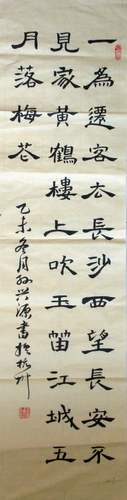 一為遷客去長沙西望長安不
見家黃鶴樓上吹玉笛江城五
月落梅花
乙未冬月孙兴源書於杭州